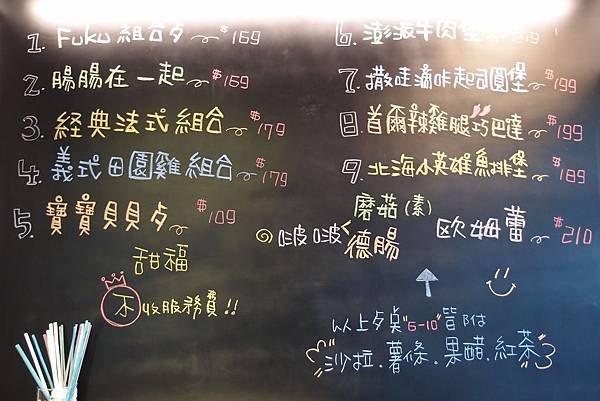 1. Fuku 組合歺 $169
2. 腸腸在一起 $169
3. 經典法式組合 $179
4. 義式田園雞組合 $179
5. 寶寶貝貝歺 $109
甜福
不收服務費!!
6. 澎湃牛肉堡
7. 撒哇滴咔起司圓堡 $199
8. 首爾辣雞腿巧巴達 $199
9. 北海小英雄魚排堡 $189
啵啵 磨菇(素) 德腸 歐姆蕾 $210
以上歺桌"6-10"皆附
沙拉.薯條.果醋.紅茶